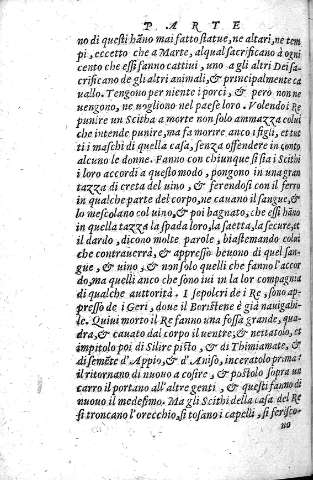 PARTE
no di questi hāno mai fatto statue, ne altari, ne tem
pi, eccetto che a Marte, al qual sacrificano à ogni
cento che essi fanno cattiui, uno a gli altri Dei sa-
crificano de gli altri animali, & principalmente ca
uallo. Tengono per niente i porci, & però non ne
uengono, ne uogliono nel paese loro. Volendo i Re
punire un Scitha a morte non solo ammazza colui
che intende punire, ma fa morire anco i figli, et tut
ti i maschi di quella casa, senza offendere in cōto
alcuno le donne. Fanno con chiunque si sia i Scithi
i loro accordi a questo modo, pongono in una gran
tazza di creta del uino, & ferendosi con il ferro
in qualche parte del corpo, ne cauano il sangue, &
lo mescolano col uino, & poi bagnato, che essi hāno
in quella tazza la spada loro, la saetta, la secure, et
il dardo, dicono molte parole, biastemando colui
che contrauerrà, & appresso beuono di quel san-
gue, & uino, & non solo quelli che fanno l'accor
do, ma quelli anco che sono iui in la lor compagnia
di qualche auttorità. I sepolcri de i Re, sono ap-
presso de i Geri, doue il Boristene è già nauigabi-
le. Quiui morto il Re fanno una fossa grande, qua-
dra, & cauato dal corpo il uentre, & nettatolo, et
impitolo poi di Silire pisto, & di Thimiamate, &
di semēte d'Appio, & d'Aniso, inceratolo prima
il ritornano di nuouo a cosire, & postolo sopra un
carro il portano all'altre genti, & questi fanno di
nuouo il medesimo. Ma gli Scithi della casa del Re
si troncano l'orecchio, si tosano i capelli, si ferisco-
no